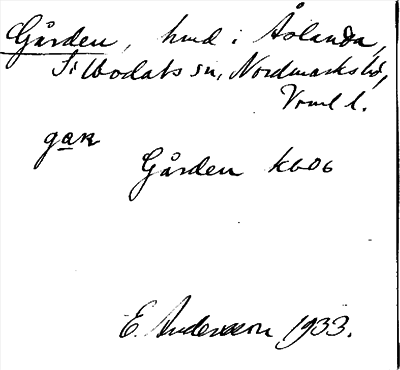 Gården, hmd i Åslanda,
Silbodals sn, Nordmarks hd,
Vrml l.
gaɽn
Gården kbo6
E. Andersson 1933.